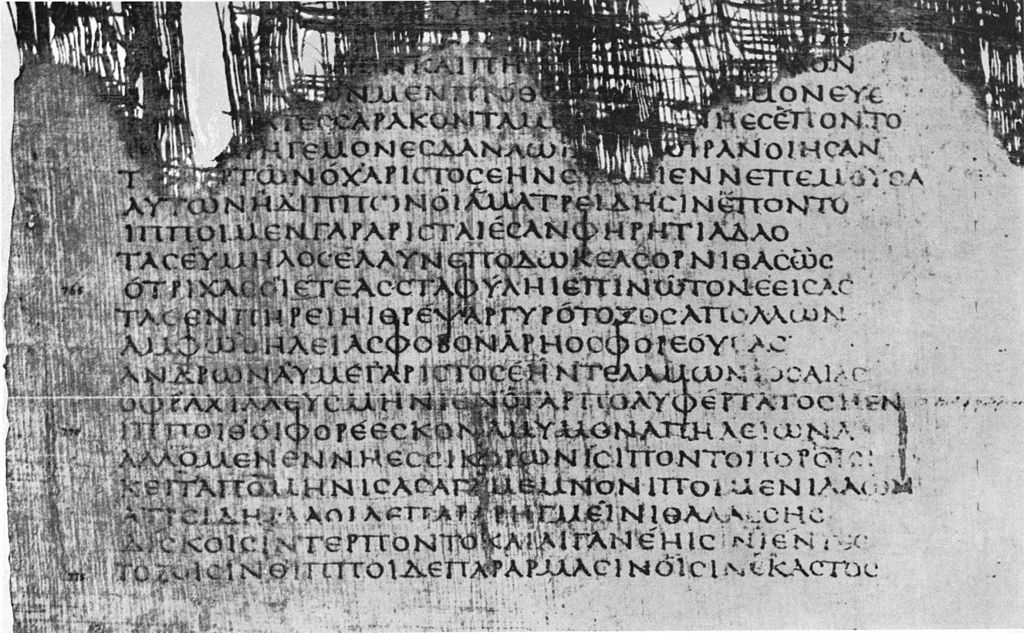 ΝΚΑΙΠΗ ΟΝ
ΩΝΜΕΝΠΡΟΘΟ ΜΟΝΕΥΕ
ΤΕϹϹΑΡΑΚΟΝΤΑΜ ΝΗΕϹΕΠΟΝΤΟ
ΗΓΕΜΟΝΕϹΔΑΝΑΩ ΟΙΡΑΝΟΙΗϹΑΝ
Τ ΡΤΩΝΟΧΑΡΙϹΤΟϹΕΗΝϹ ΙΕΝΝΕΠΕΜΟΥϹΑ
ΑΥΤΩΝΗΔΙΠΠΩΝΟΙΑΜΑΤΡΕΙΔΗϹΙΝΕΠΟΝΤΟ
ΙΠΠΟΙΜΕΝΓΑΡΑΡΙϹΤΑΙΕϹΑΝΦΗΡΗΤΙΑΔΑΟ
ΤΑϹΕΥΜΗΛΟϹΕΛΑΥΝΕΠΟΔΩΚΕΑϹΟΡΝΙΘΑϹΩϹ
ΟΤΡΙΧΑϹΟΙΕΤΕΑϹϹΤΑΦΥΛΗΙΕΠΙΝΩΤΟΝΕΕΙϹΑϹ
ΤΑϹΕΝΠΗΡΕΙΗΙΘΡΕΨΑΡΓΥΡΟΤΟΞΟϹΑΠΟΛΛΩΝ
ΑΜΦΩΘΗΛΕΙΑϹΦΟΒΟΝΑΡΗΟϹΦΟΡΕΟΥϹΑϹ
ΑΝΔΡΩΝΑΥΜΕΓΑΡΙϹΤΟϹΕΗΝΤΕΛΑΜΩΝΙΟϹΑΙΑϹ
ΟΦΡΑΧΙΛΛΕΥϹΜΗΝΙΕΝΟΓΑΡΠΟΛΥΦΕΡΤΑΤΟϹΗΕΝ
ΙΠΠΟΙΘΟΙΦΟΡΕΕϹΚΟΝΑΜΥΜΟΝΑΠΗΛΕΙΩΝΑ
ΑΛΛΟΜΕΝΕΝΝΗΕϹϹΙΚΟΡΩΝΙϹΙΠΟΝΤΟΠΟΡΟΙϹΙ
ΚΕΙΤΑΠΟΜΗΝΙϹΑϹΑΓΑΜΕΜΝΟΝΙΠΟΙΜΕΝΙΛΑΩΝ
ΑΤΡΕΙΔΗΙΛΑΟΙΔΕΠΑΡΑΡΗΓΜΕΙΝΙΘΑΛΑϹϹΗϹ
ΔΙϹΚΟΙϹΙΝΤΕΡΠΟΝΤΟΚΑΙΑΙΓΑΝΕΗΙϹΙΝΙΕΝΤΕϹ
ΤΟΞΟΙϹΙΝΘΙΠΠΟΙΔΕΠΑΡΑΡΜΑϹΙΝΟΙϹΙΝΕΚΑϹΤΟϹ